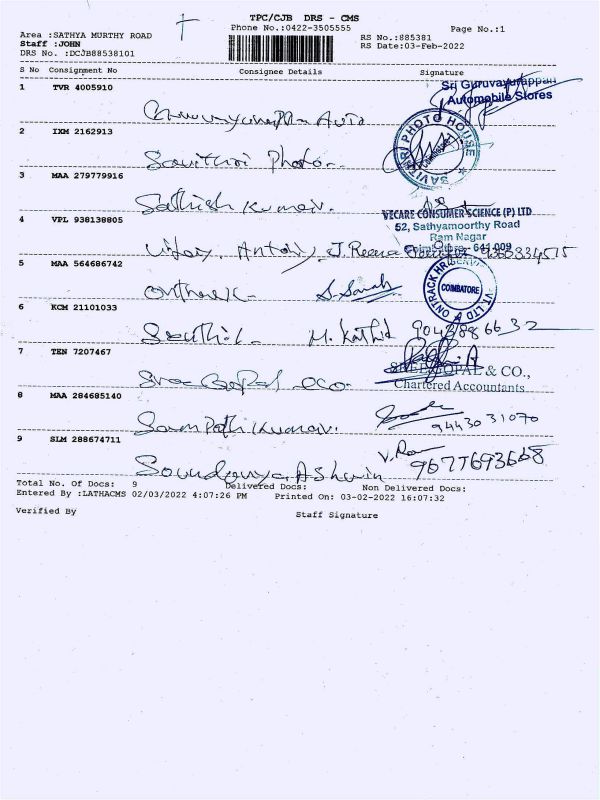 TPC/CJB DRS - CMS
Phone No.:0422-3505555 Page No.:1
Area :SATHYA MURTHY ROAD RS No.:885381
Staff :JOHN RS Date:03-Feb-2022
DRS No. :DCJB88538101
S No Consignment No Consignee Details Signature
1 TVR 4005910 Sri Guruvayurappan
Automobile Stores
Auto
2 IXM 2162913 SAVITHRI PHOTO HOUSE
Photo
3 MAA 279779916
Sathish Kumar.
4 VPL 938138805 VECARE CONSUMER SCIENCE (P) LTD
52, Sathyamoorthy Road
Ram Nagar
641 009
Vijay. Antony J. Reena
5 MAA 564686742 ONTRACK HR COIMBATORE
6 KCM 21101033
Senthil.
7 TEN 7207467 SREE GOPAL & CO.,
Chartered Accountants
Sree Gopal & Co.
8 MAA 284685140
Sampath Kumar. 94430 31070
9 SLM 288674711
Soundarya Ashwin 9677693668
Total No. of Docs: 9 Delivered Docs: Non Delivered Docs:
Entered By :LATHACMS 02/03/2022 4:07:26 PM Printed On: 03-02-2022 16:07:32
Verified By Staff Signature